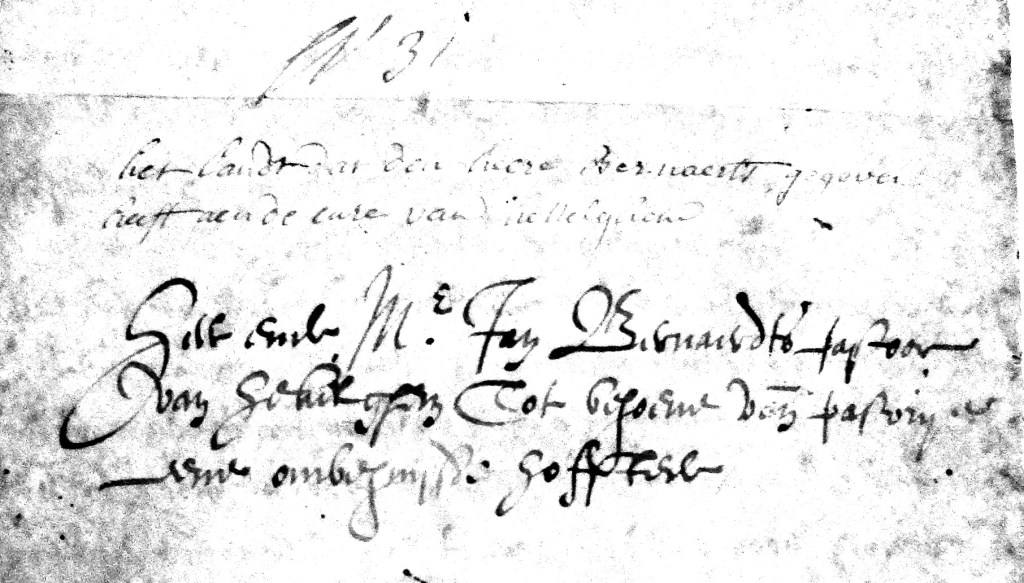 N° 31
het landt dat den heere Bernaerts gegeven
heeft aen de cure van
Heer ende M.e Jan Bernaerdts pastoor
van hekelghem Tot behoeve van pastorij
eene onbehuijsde hoffstede